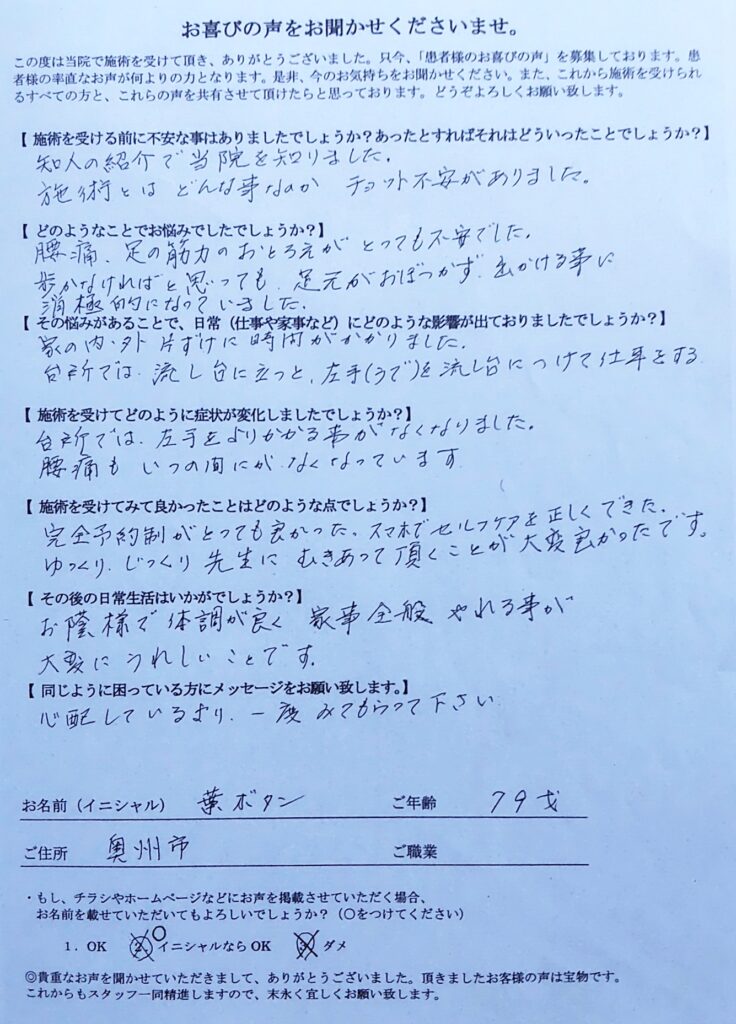 お喜びの声をお聞かせくださいませ。
この度は当院で施術を受けて頂き、ありがとうございました。只今、「患者様のお喜びの声」を募集しております。患
者様の率直なお声が何よりの力となります。是非、今のお気持ちをお聞かせください。また、これから施術を受けられ
るすべての方と、これらの声を共有させて頂けたらと思っております。どうぞよろしくお願い致します。
【 施術を受ける前に不安な事はありましたでしょうか？あったとすればそれはどういったことでしょうか？】
知人の紹介で当院を知りました.
施術とは どんな事なのか チョット不安がありました。
【 どのようなことでお悩みでしたでしょうか？】
腰痛、足の筋力のおとろえが とっても不安でした.
歩かなければと思っても、足元がおぼつかず、出かける事に
消極的になっていました.
【 その悩みがあることで、日常（仕事や家事など）にどのような影響が出ておりましたでしょうか？】
家の内・外 片ずけに時間がかかりました.
台所では、流し台に立つと、左手(うで)を流し台につけて仕事をする
【 施術を受けてどのように症状が変化しましたでしょうか？】
台所では、左手をよりかかる事がなくなりました。
腰痛も いつの間にか、なくなっています
【 施術を受けてみて良かったことはどのような点でしょうか？】
完全予約制がとっても良かった。スマホでセルフケアを正しくできた.
ゆっくり、じっくり 先生に むきあって頂くことが大変良かったです。
【 その後の日常生活はいかがでしょうか？】
お蔭様で体調が良く 家事全般 やれる事が
大変にうれしいことです.
【 同じように困っている方にメッセージをお願い致します。】
心配しているより、一度 みてもらって下さい
お名前（イニシャル） 葉ボタン ご年齢 79才
ご住所 奥州市 ご職業
・もし、チラシやホームページなどにお声を掲載させていただく場合、
お名前を載せていただいてもよろしいでしょうか？（○をつけてください）
1．OK 2．イニシャルなら OK 3．ダメ
◎貴重なお声を聞かせていただきまして、ありがとうございました。頂きましたお客様の声は宝物です。
これからもスタッフ一同精進しますので、末永く宜しくお願い致します。